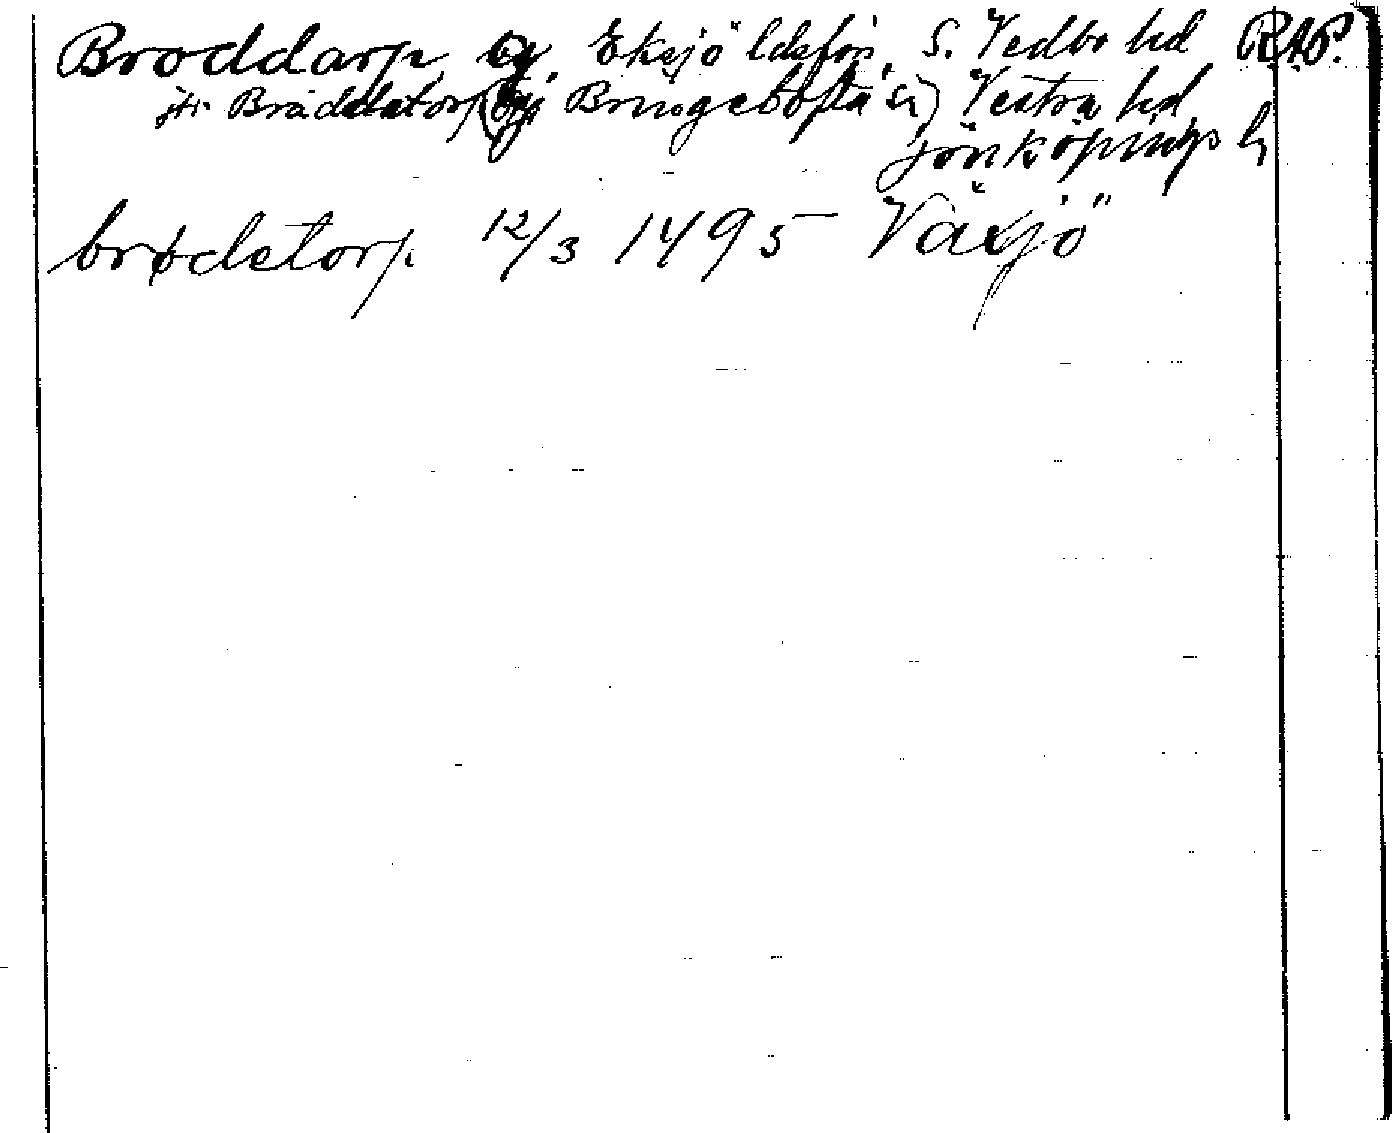 Broddarp, Eksjö ldsförs, S. Vedbo hd RAP.
jfr Bräddetorp (by Bringetofta sn) Vestra hd
Jönköpings l
brødetorp 12/3 1495 Växjö